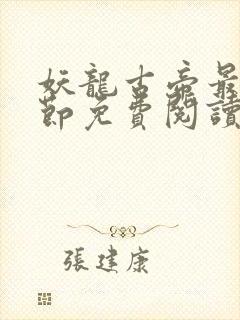 妖龍古帝最
節免費閱讀
張建康